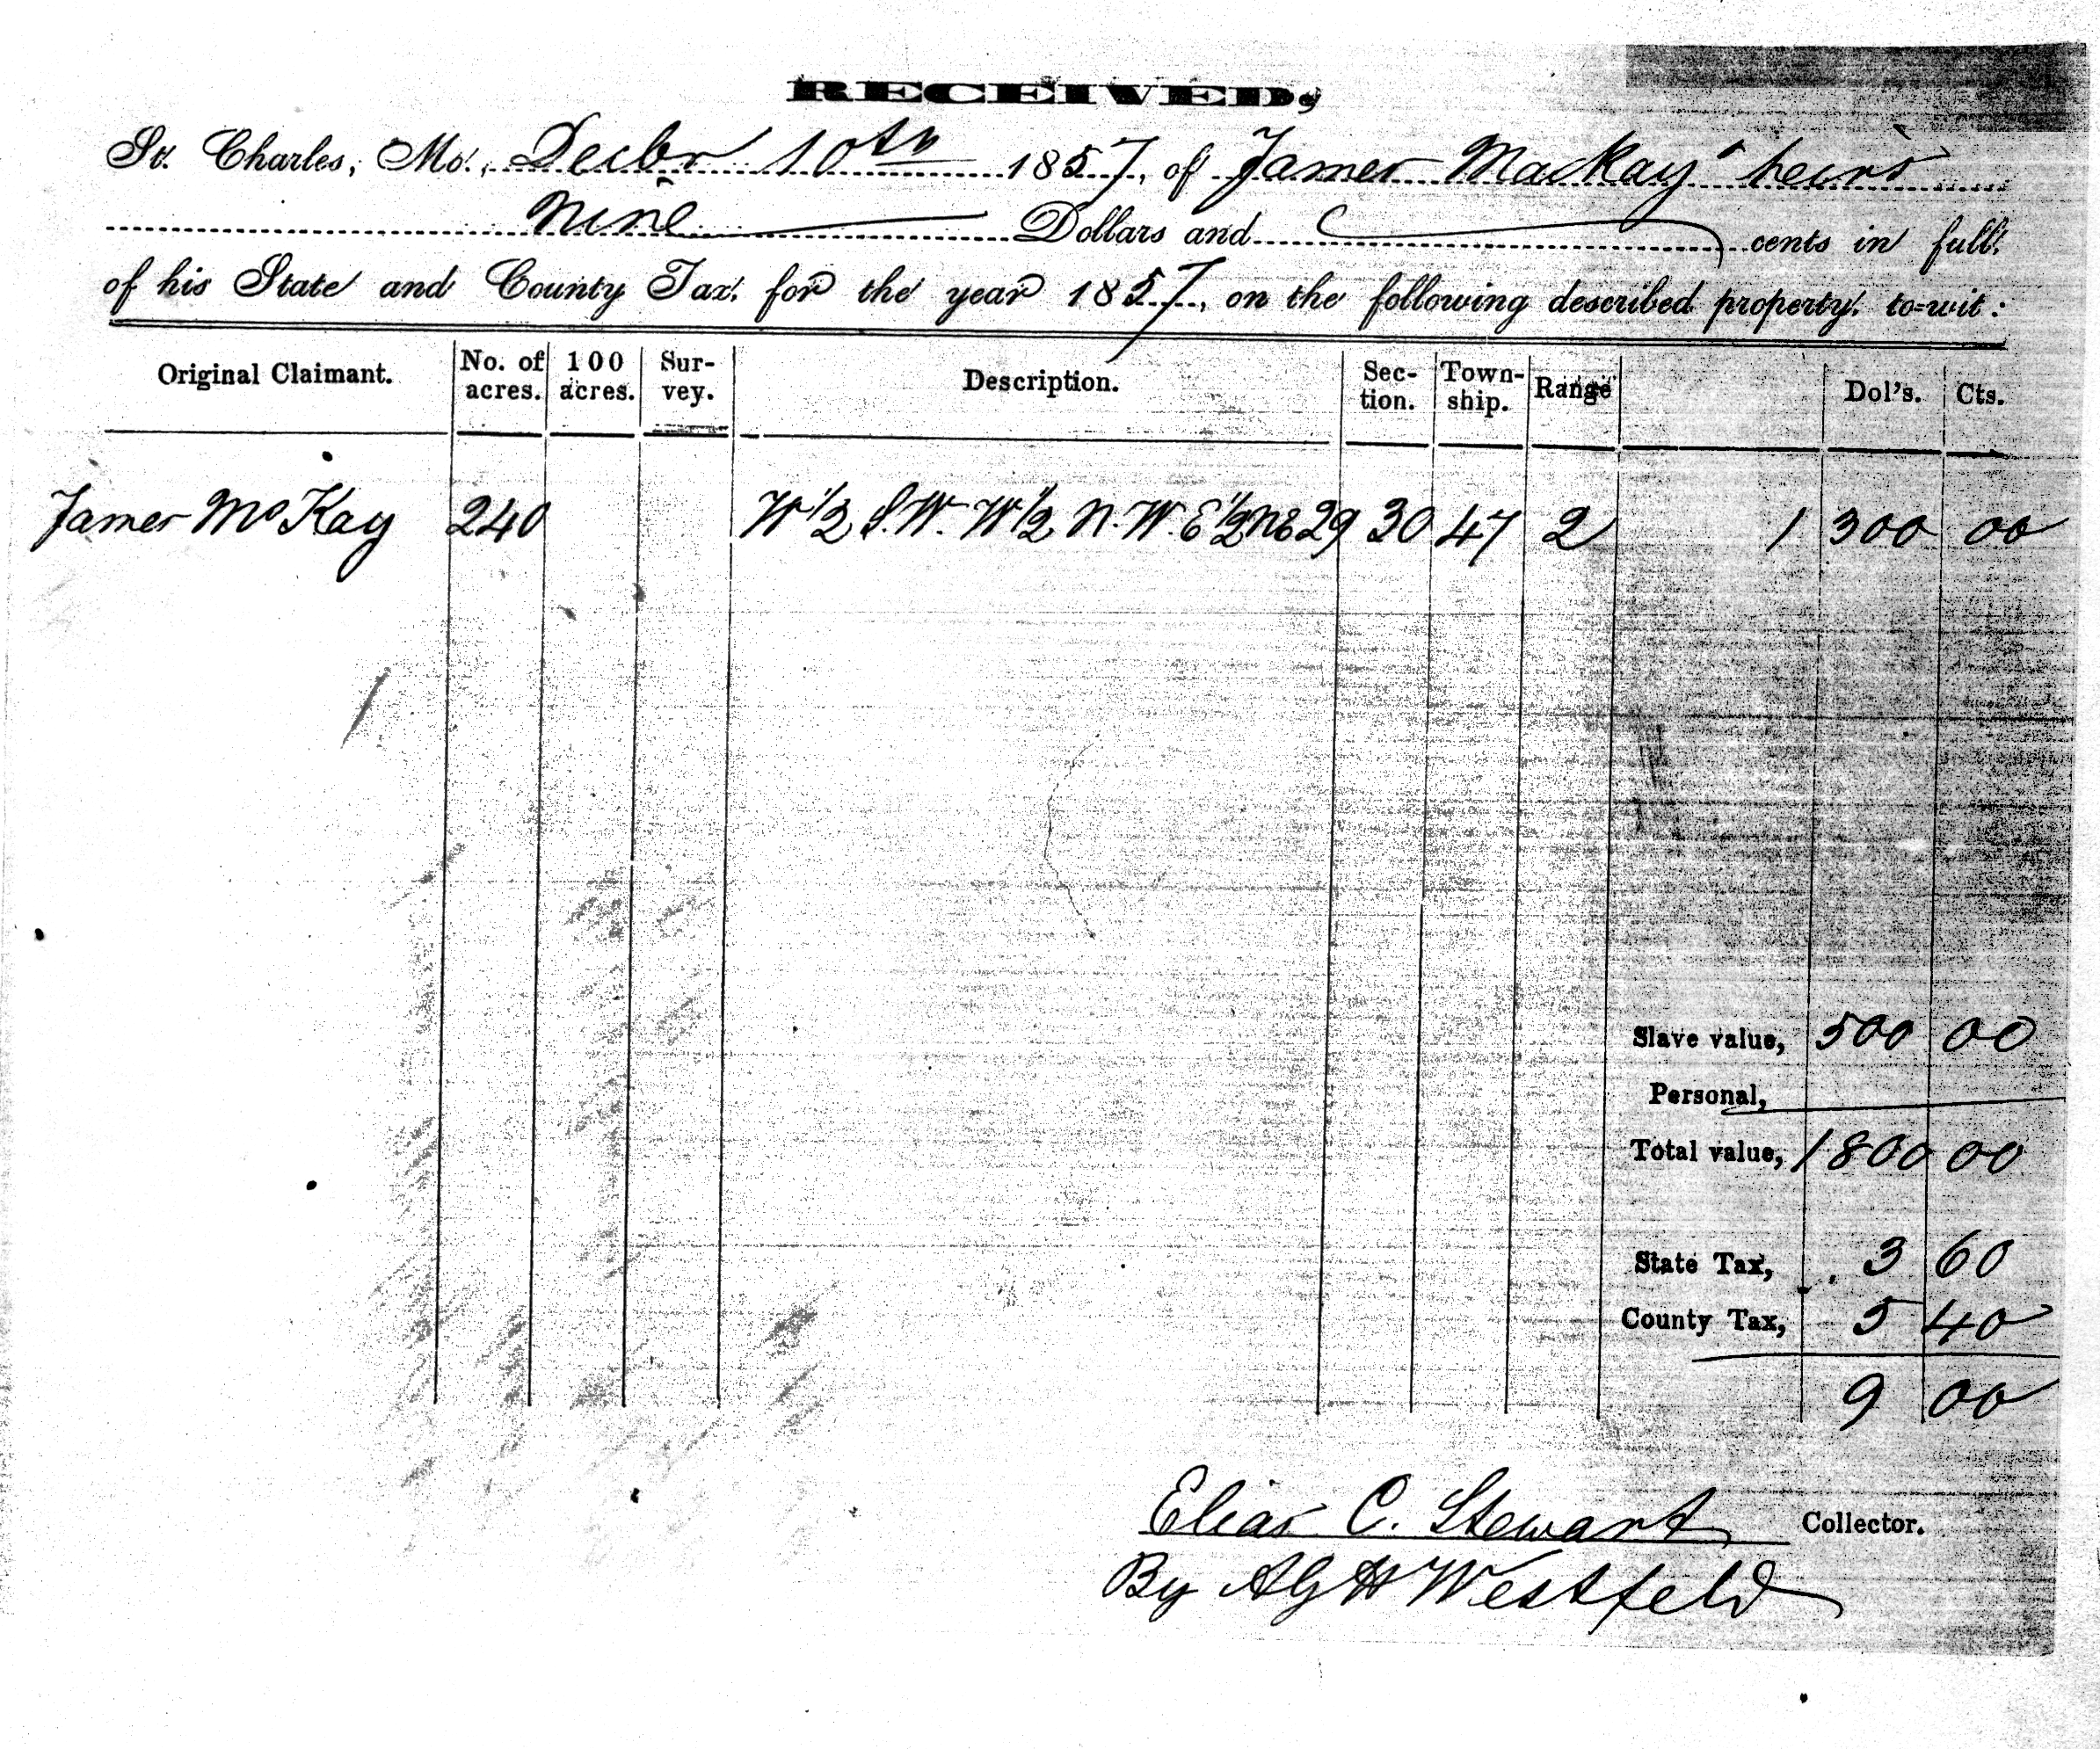 RECEIVED,
St. Charles, Mo., Decbr 10th 1857, of James Mackay's heirs
Nine Dollars and cents in full
of his State and County Tax for the year 1857, on the following described property, to-wit:
Original Claimant. No. of acres. 100 acres. Survey. Description. Section. Township. Range Dol's. Cts.
James McKay 240 W 1/2 S.W. W 1/2 N.W. E 1/2 NE 29 30 47 2 1 300 00
Slave value, 500 00
Personal,
Total value, 1800 00
State Tax, 3 60
County Tax, 5 40
9 00
Elias C. Stewart Collector.
By AGH Westfeld